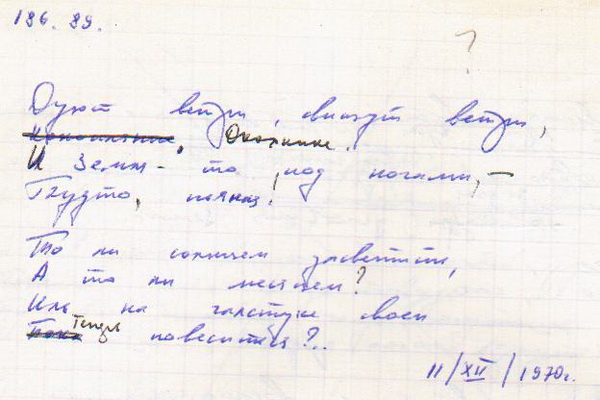 196. 89.
?
Дуют ветры, свищут ветры,
Окаянные.
И Земля-то под ногами, –
Будто, пьяная!
То ли солнцем засветить,
А то ли месяцем?
Иль на галстуке своем
Теперь повеситься?..
11/XII/1970г.